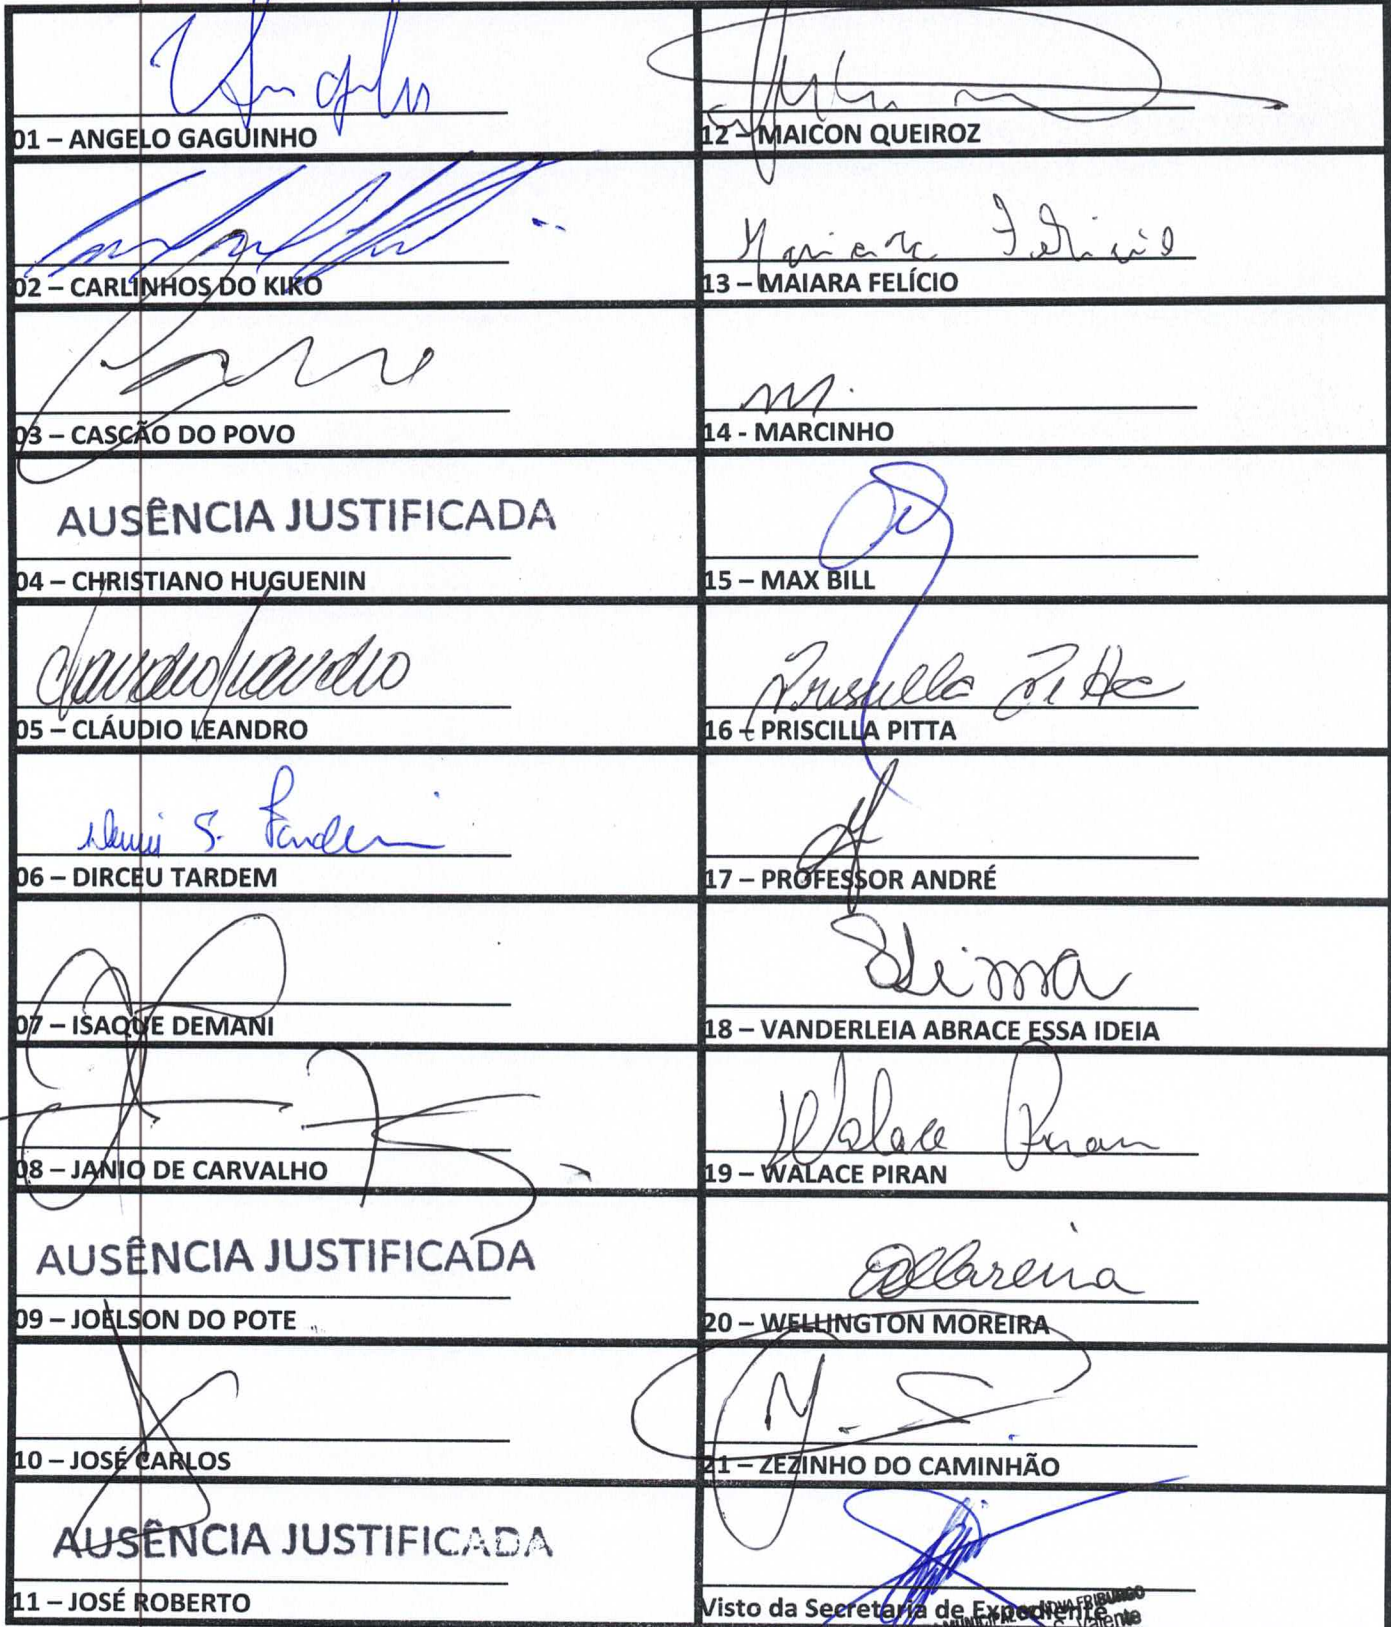 Angelo
01 – ANGELO GAGUINHO
02 – CARLINHOS DO KIKO
03 – CASCÃO DO POVO
AUSÊNCIA JUSTIFICADA
04 – CHRISTIANO HUGUENIN
Claudio Leandro
05 – CLÁUDIO LEANDRO
06 – DIRCEU TARDEM
07 – ISAQUE DEMANI
08 – JANIO DE CARVALHO
AUSÊNCIA JUSTIFICADA
09 – JOELSON DO POTE
10 – JOSÉ CARLOS
AUSÊNCIA JUSTIFICADA
11 – JOSÉ ROBERTO
12 – MAICON QUEIROZ
Maiara Felicio
13 – MAIARA FELÍCIO
m.
14 - MARCINHO
15 – MAX BILL
Priscilla Pitta
16 – PRISCILLA PITTA
17 – PROFESSOR ANDRÉ
18 – VANDERLEIA ABRACE ESSA IDEIA
Walace Piran
19 – WALACE PIRAN
20 – WELLINGTON MOREIRA
21 – ZEZINHO DO CAMINHÃO
Visto da Secretaria de Expediente